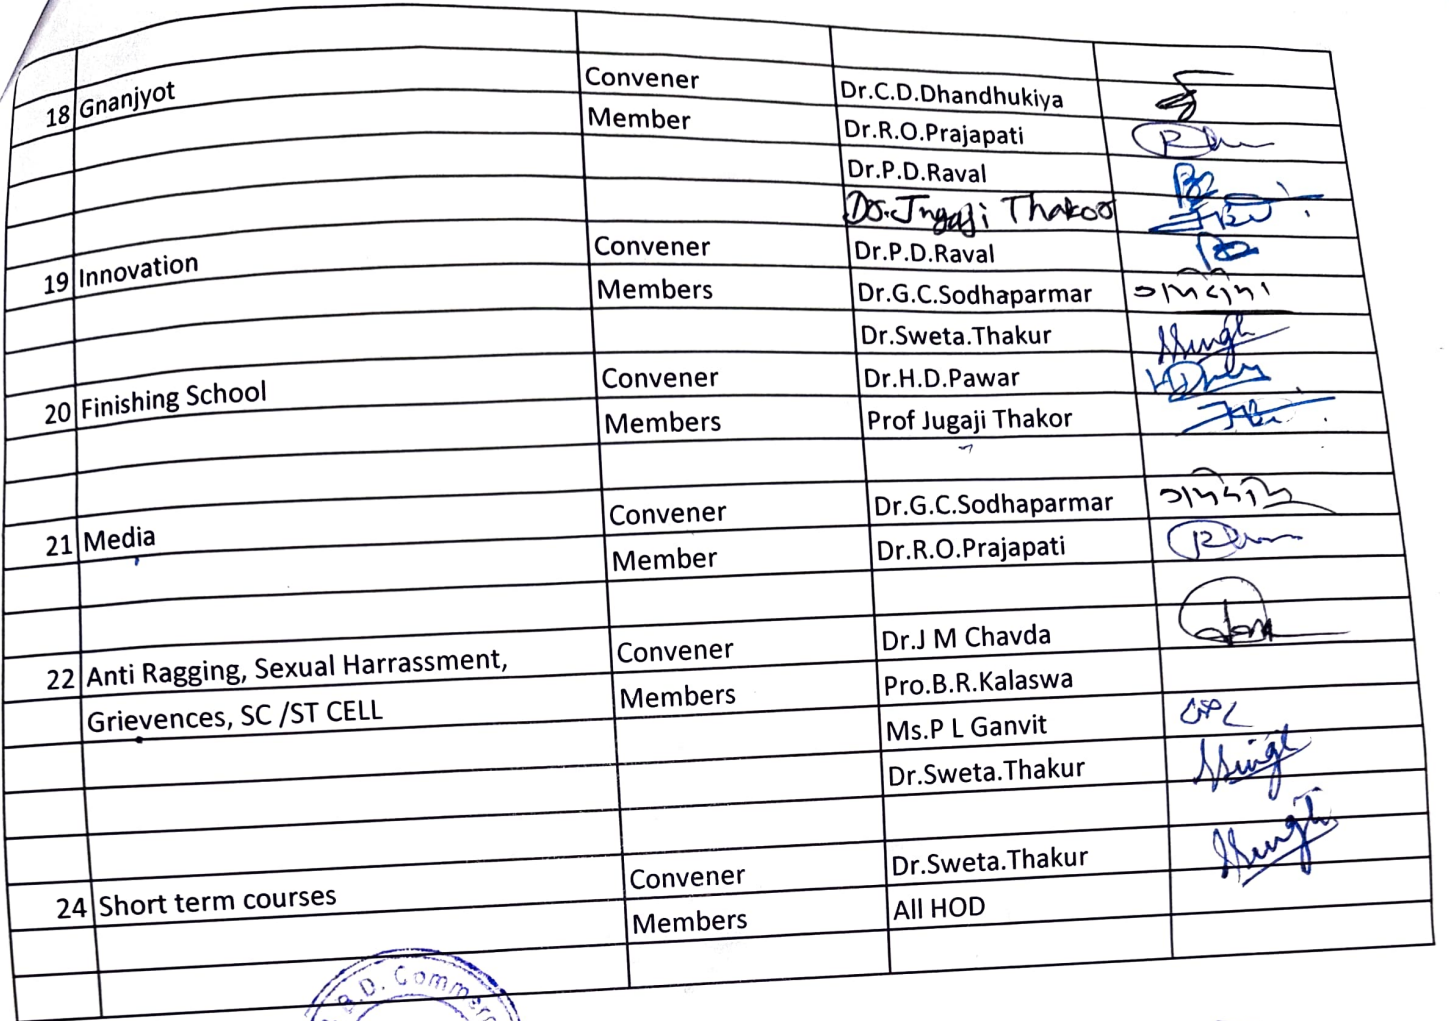 18 Gnanjyot Convener Dr.C.D.Dhandhukiya
Member Dr.R.O.Prajapati
Dr.P.D.Raval
Dr. Jugaji Thakor
19 Innovation Convener Dr.P.D.Raval
Members Dr.G.C.Sodhaparmar
Dr.Sweta.Thakur
20 Finishing School Convener Dr.H.D.Pawar
Members Prof Jugaji Thakor
21 Media Convener Dr.G.C.Sodhaparmar
Member Dr.R.O.Prajapati
22 Anti Ragging, Sexual Harrassment, Convener Dr.J M Chavda
Grievences, SC /ST CELL Members Pro.B.R.Kalaswa
Ms.P L Ganvit
Dr.Sweta.Thakur
24 Short term courses Convener Dr.Sweta.Thakur
Members All HOD